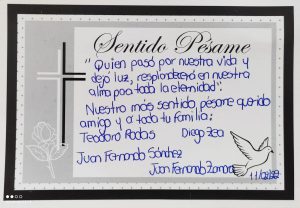 Sentido Pésame
"Quien pasó por nuestra vida y
dejó luz, resplandecerá en nuestra
alma por toda la eternidad".
Nuestro más sentido pésame querido
amigo y a toda tu familia:
Teodoro Rodas Diego Zea
Juan Fernando Sánchez
Juan Fernando Zamora